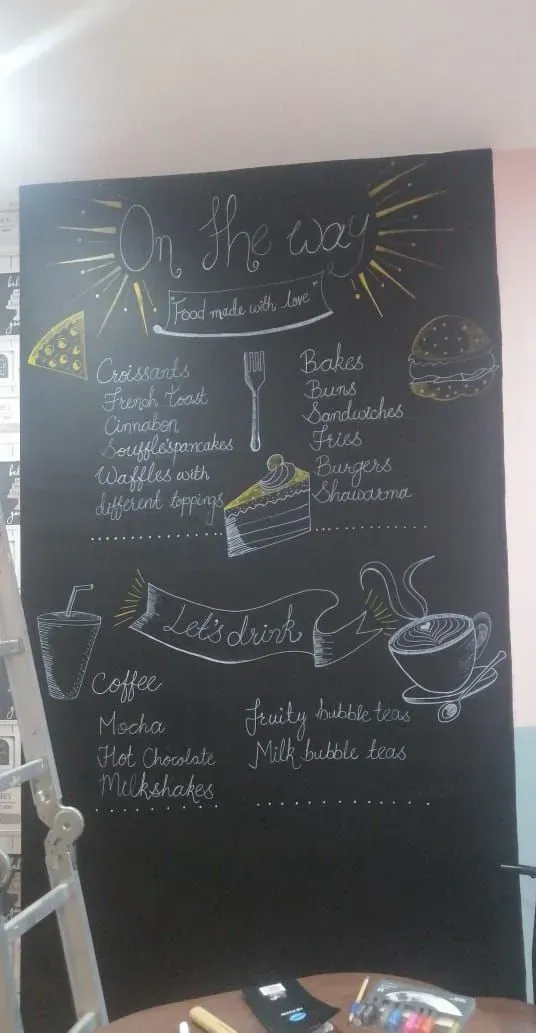 On the way
"Food made with love"
Croissants
French toast
Cinnabon
Souffle'spancakes
Waffles with
different toppings
Bakes
Buns
Sandwiches
Fries
Burgers
Shawarma
Let's drink
Coffee
Mocha
Hot Chocolate
Milkshakes
Fruity bubble teas
Milk bubble teas